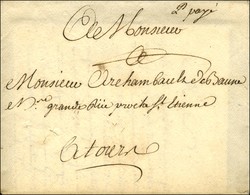 P. payé
A Monsieur
A
Monsieur Archambault de Beaune
Grande Rüe proche St Etienne
A tours